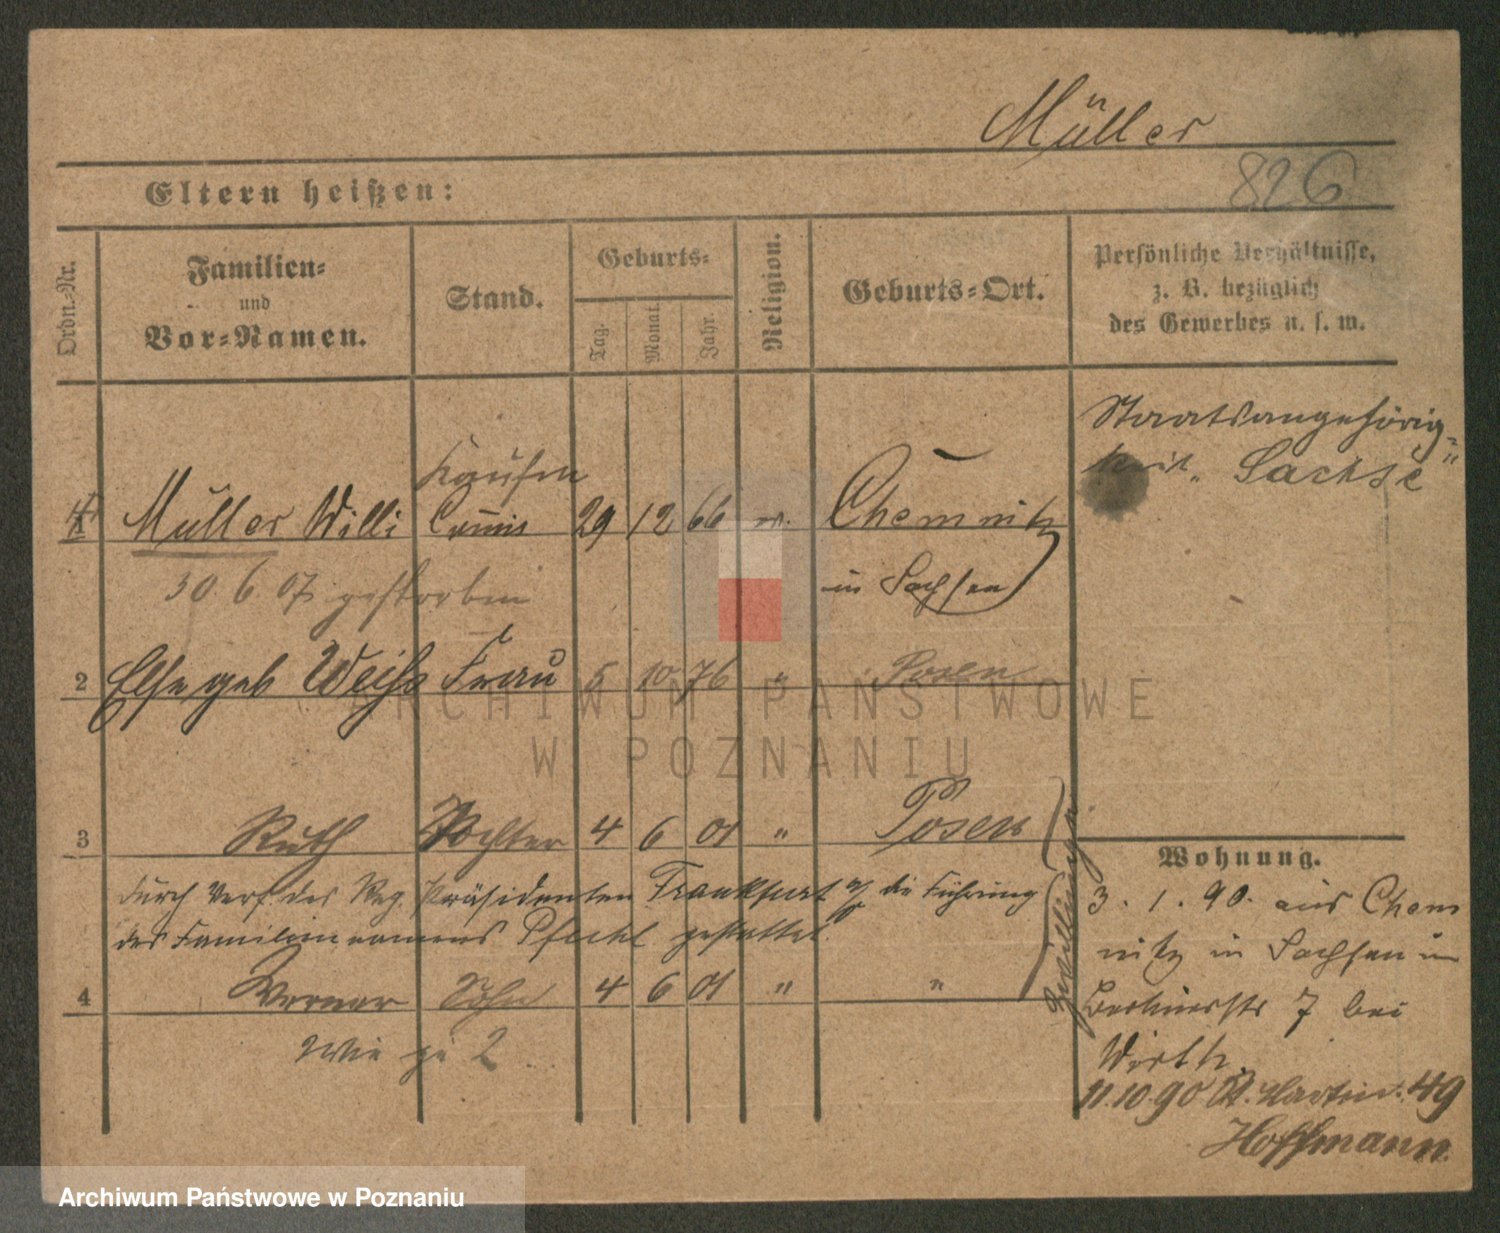 Müller
Eltern heißen:
826
Ordn.-Nr.
Familien-
und
Vor-Namen.
Stand.
Geburts-
Tag.
Monat.
Jahr.
Religion.
Geburts-Ort.
Persönliche Verhältnisse,
z. B. bezüglich
des Gewerbes u. s. w.
Staatsangehörig-
keit „Sachse"
Kaufm
1 Müller Willi Commis 29 12 66 ev. Chemnitz
in Sachsen
30 6 07 gestorben
2 Else geb Weiss Frau 5 10 76 " Posen
3 Ruth Tochter 4 6 01 " Posen
durch Verf. des Reg. Präsidenten Frankfurt a/O die Führung
des Familiennamens gestattet.
4 Werner Sohn 4 6 01 " "
Zwillinge
wie zu 2
Wohnung.
3. 1. 90. aus Chem
nitz in Sachsen in
Berlinerstr 7 bei
Wirth.
11.10.90 St. Martin. 49
Hoffmann.
ARCHIWUM PAŃSTWOWE
W POZNANIU
Archiwum Państwowe w Poznaniu